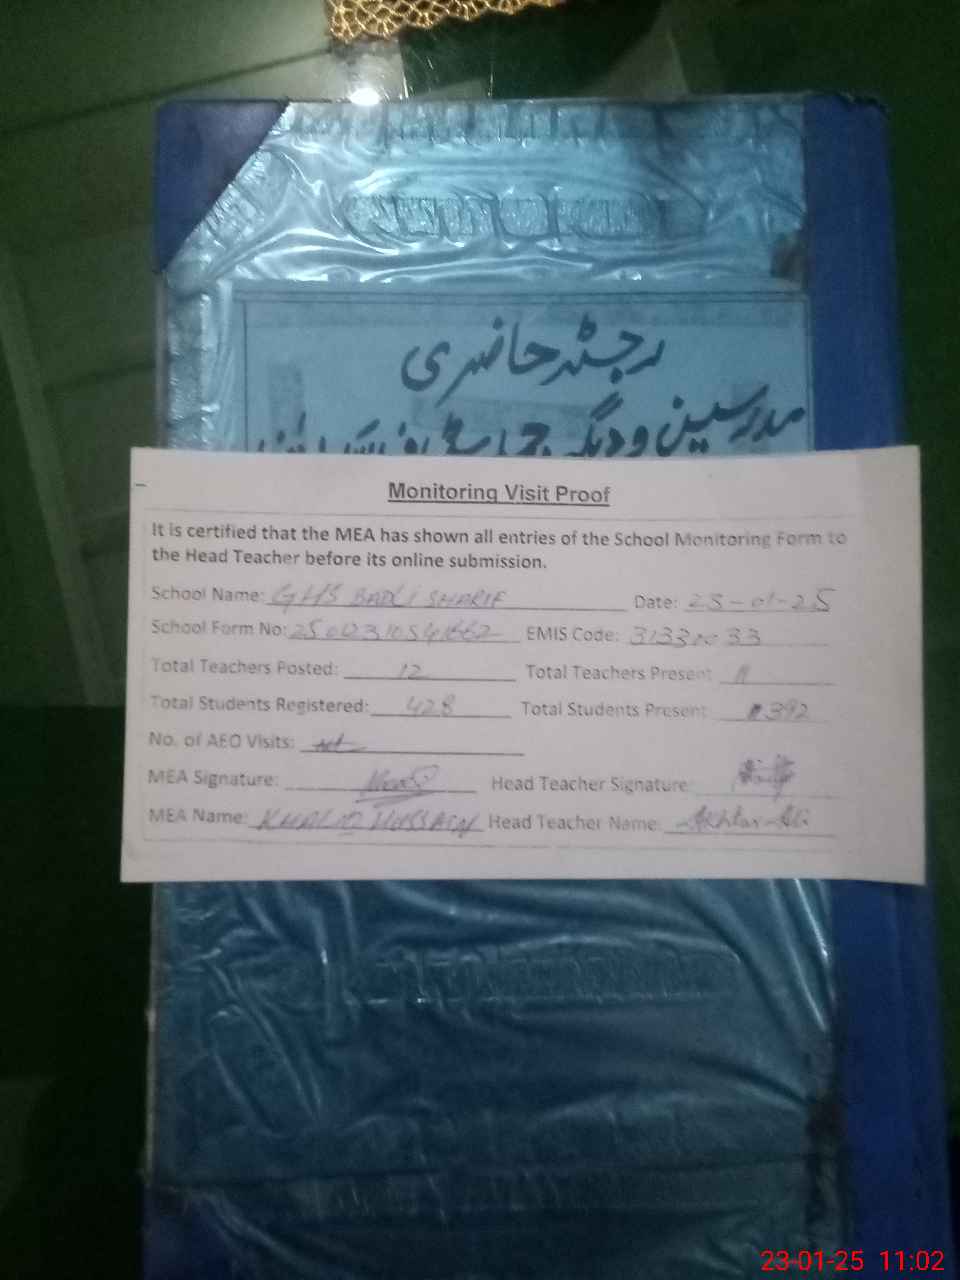 رجسٹر حاضری
مدرسین و دیگر
Monitoring Visit Proof
It is certified that the MEA has shown all entries of the School Monitoring Form to
the Head Teacher before its online submission.
School Name: GHS BADLI SHARIF Date: 23-01-25
School Form No: EMIS Code:
Total Teachers Posted: 12 Total Teachers Present 11
Total Students Registered: 428 Total Students Present 392
No. of AEO Visits:
MEA Signature: Head Teacher Signature:
MEA Name: KHALID HUSSAIN Head Teacher Name: Akhtar Ali
23-01-25 11:02